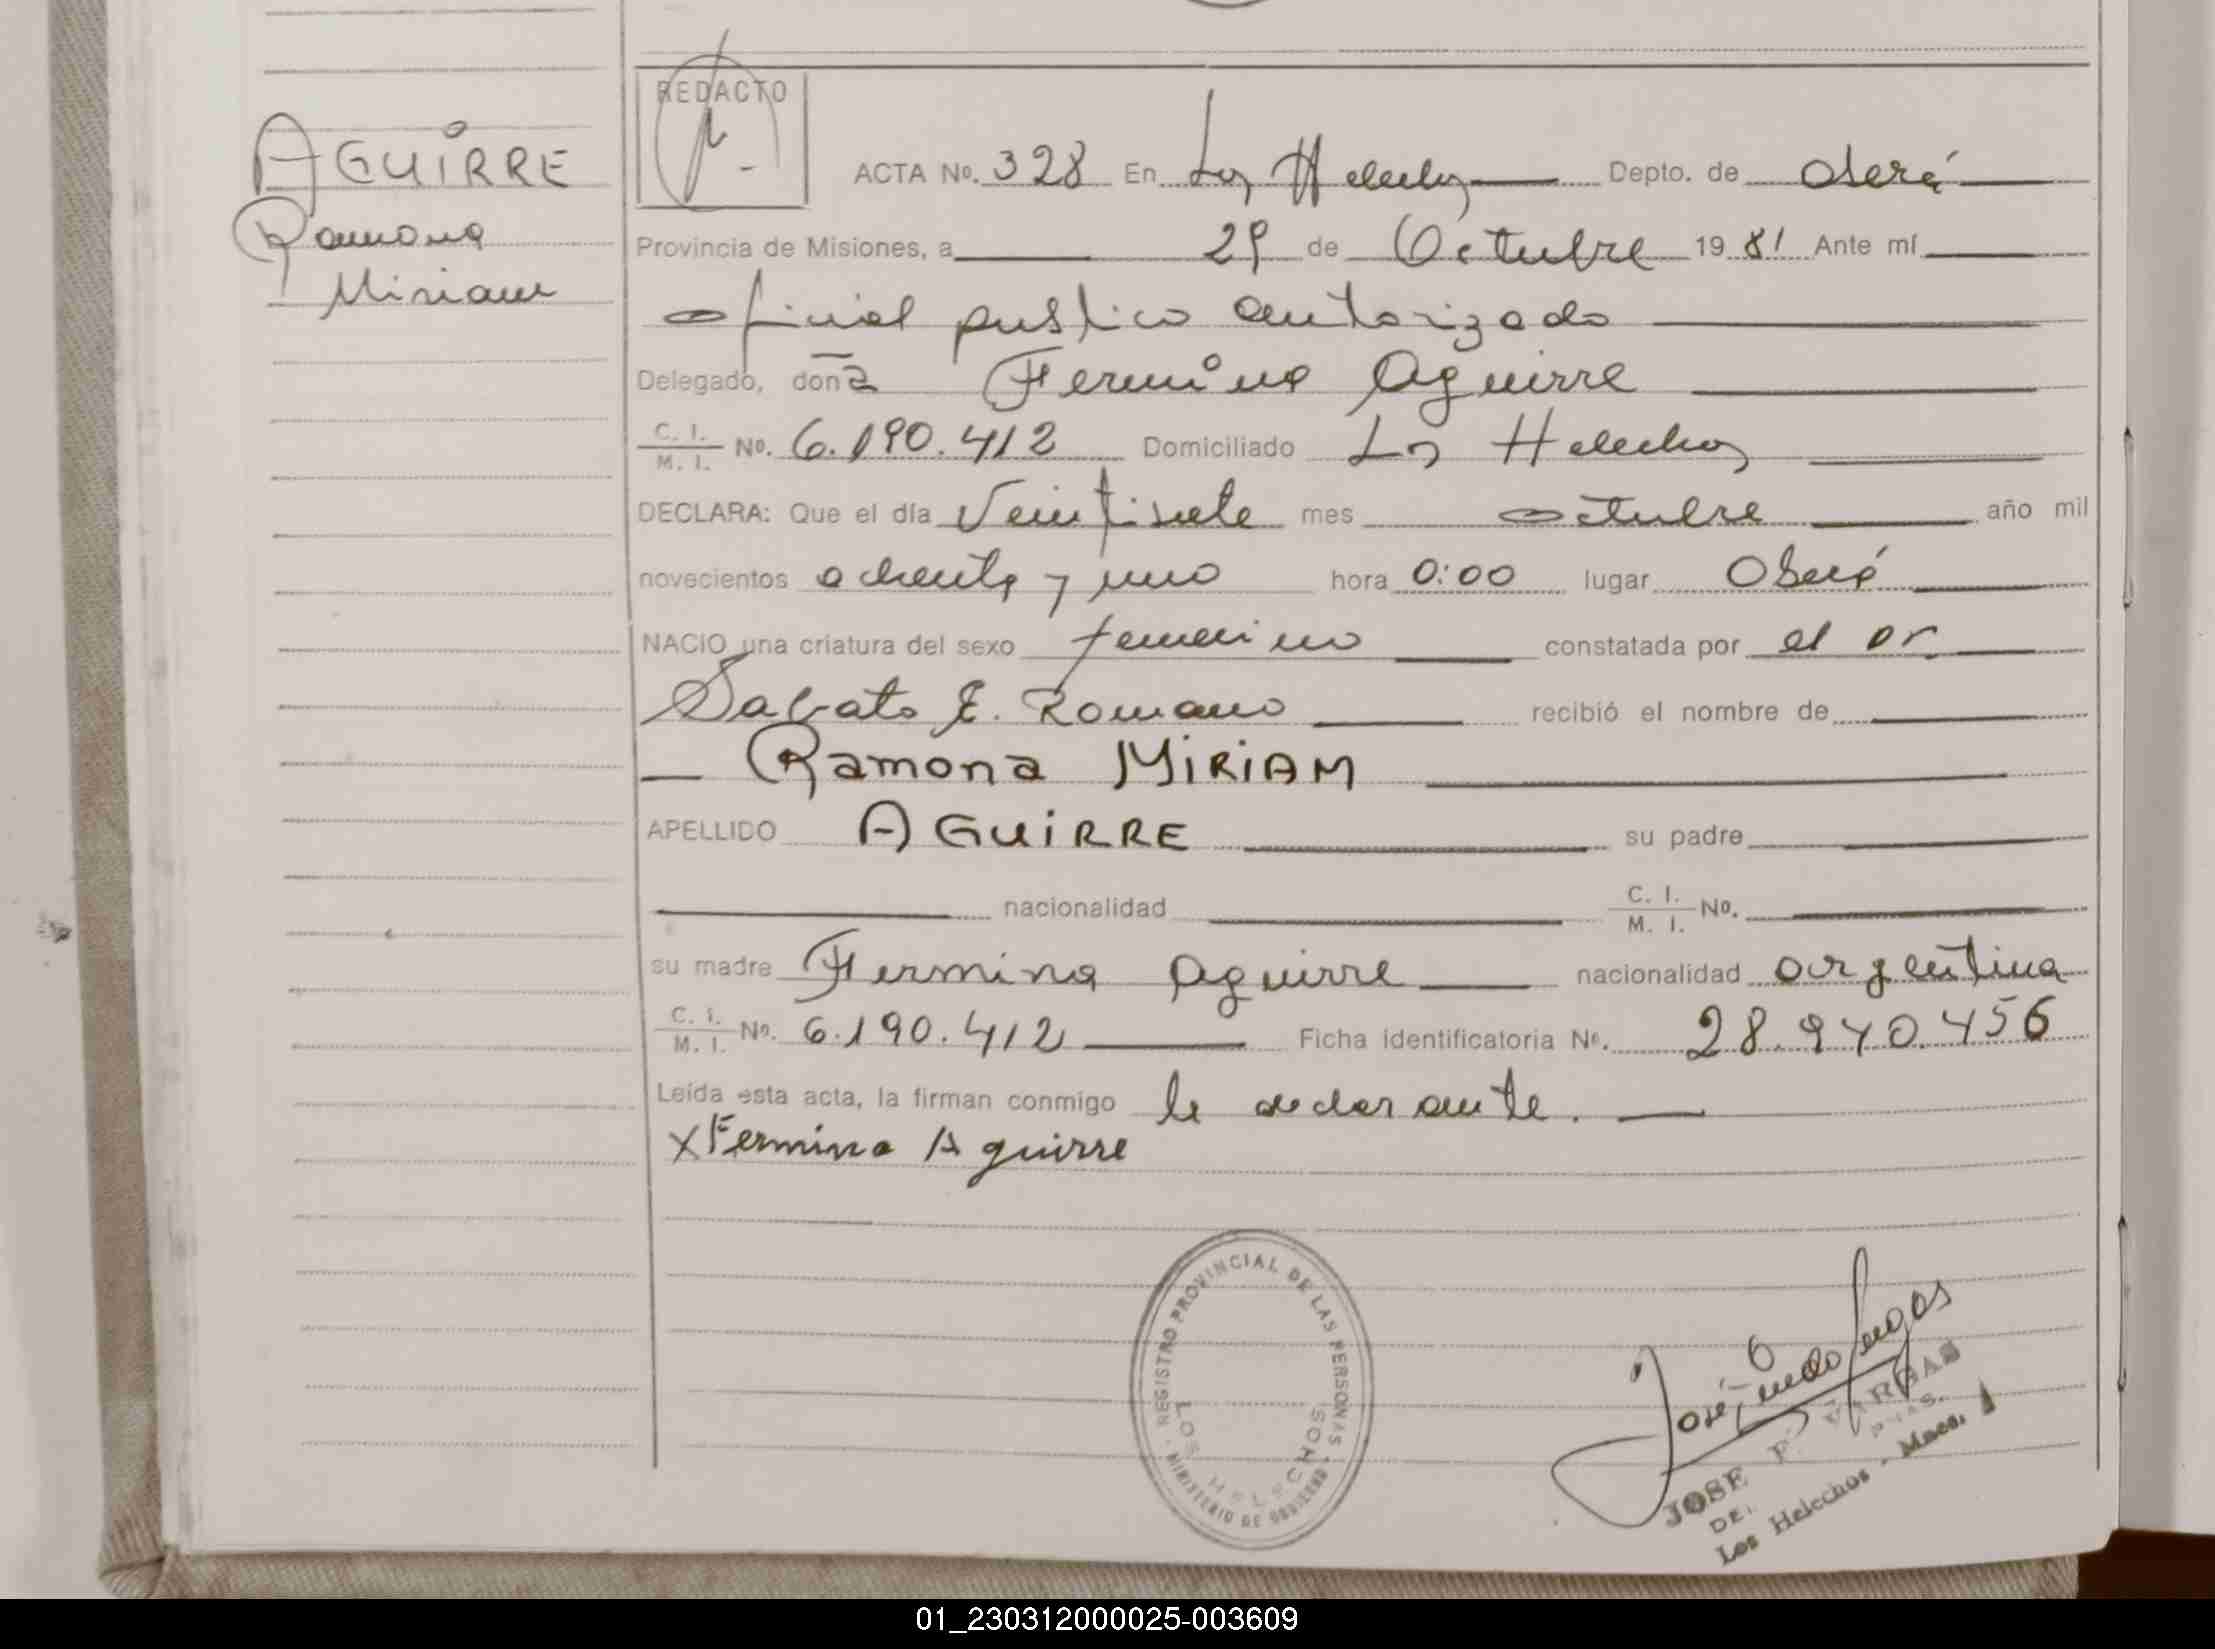 AGUIRRE
Ramona
Miriam
REDACTO
ACTA No. 328 En Los Helechos Depto. de Oberá
Provincia de Misiones, a 29 de Octubre 1981 Ante mí
oficial publico autorizado
Delegado, doña Fermina Aguirre
C. I. / M. I. No. 6.190.412 Domiciliado Los Helechos
DECLARA: Que el día Veintisiete mes octubre año mil
novecientos ochenta y uno hora 0:00 lugar Oberá
NACIO una criatura del sexo femenino constatada por el Dr.
Sabato E. Romano recibió el nombre de
Ramona MIRIAM
APELLIDO AGUIRRE su padre
nacionalidad C. I. / M. I. No.
su madre Fermina Aguirre nacionalidad argentina
C. I. / M. I. No. 6.190.412 Ficha identificatoria No. 28.940.456
Leída esta acta, la firman conmigo la declarante.
X Fermina Aguirre
REGISTRO PROVINCIAL DE LAS PERSONAS
LOS HELECHOS
MINISTERIO DE GOBIERNO
JOSE F. VARGAS
Los Helechos - Mnes.
01_230312000025-003609